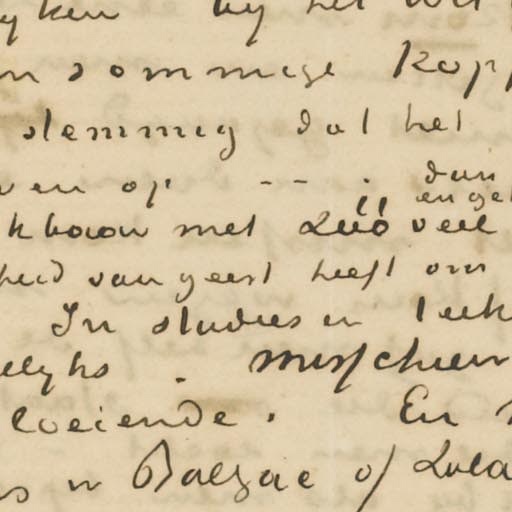 yken by het
n sommige Kopp
stemmig dat het
ven op -- . dan
en ge
k bouw met zóó veel
heid van geest heeft om
In studies en
elyks . misschien
loeiende. En
in Balzac of Zola